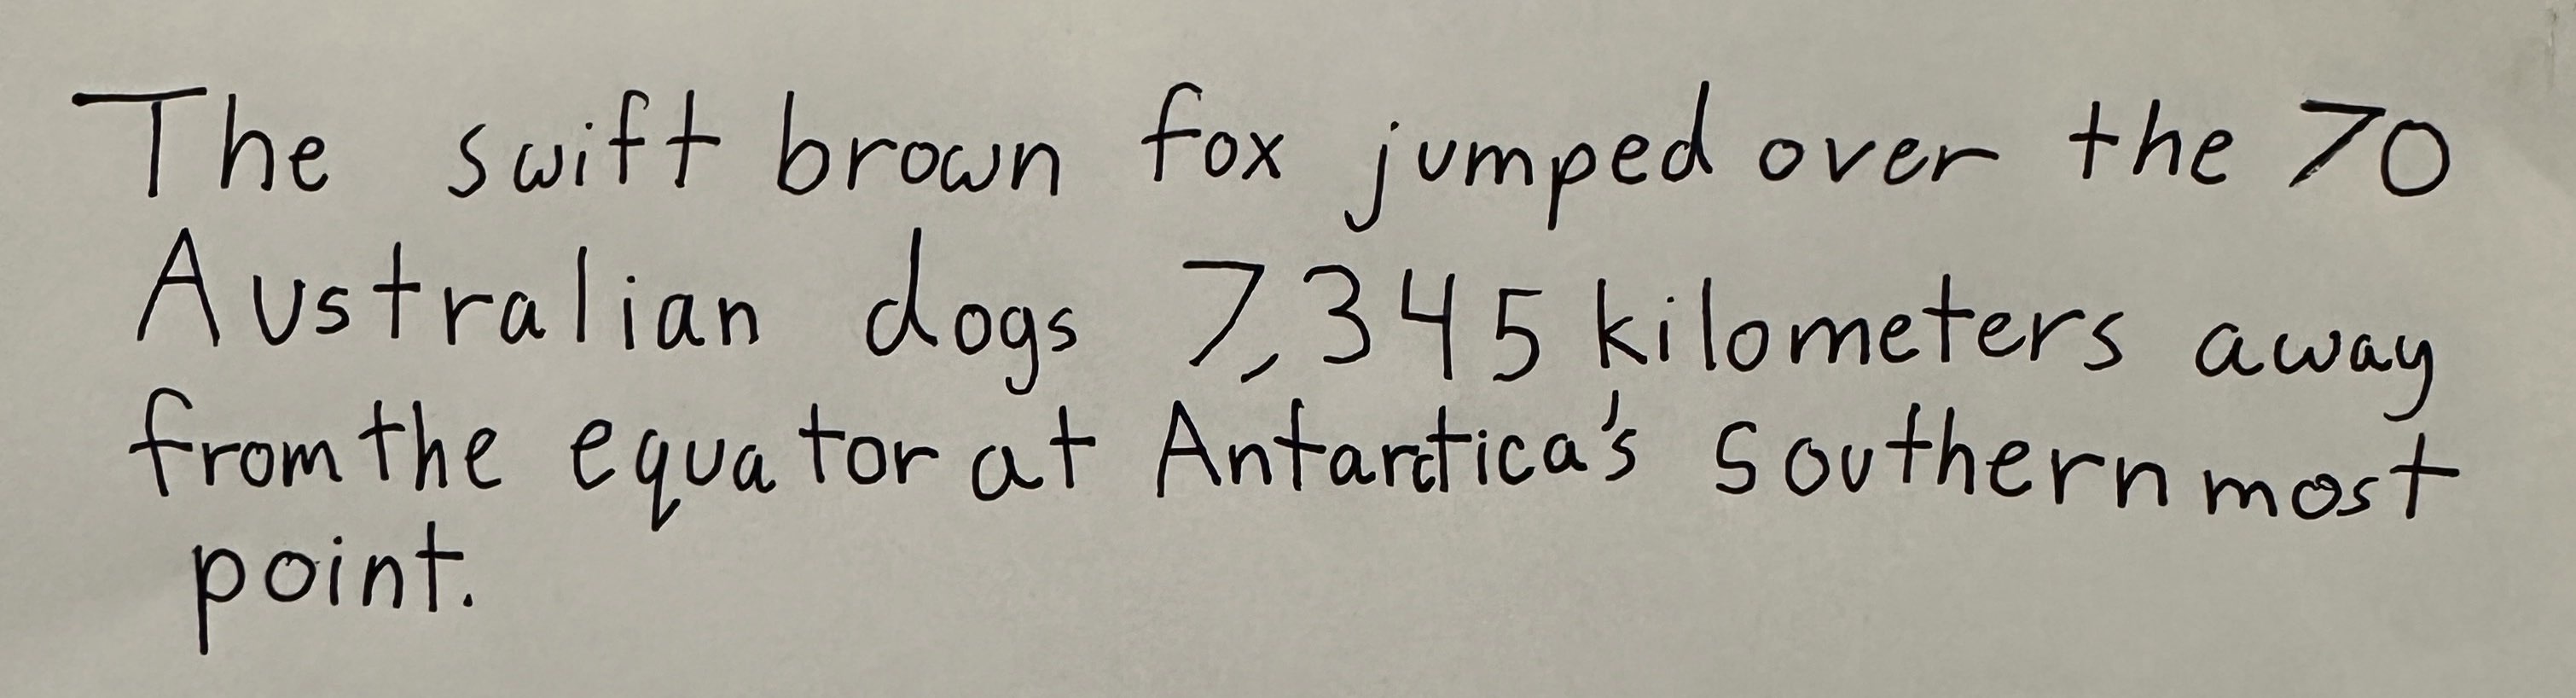 The swift brown fox jumped over the 70
Australian dogs 7,345 kilometers away
from the equator at Antarctica's southernmost
point.